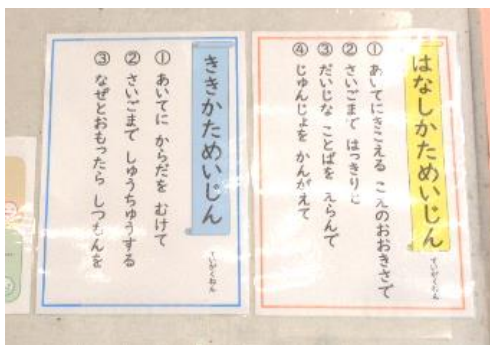 はなしかためいじん
ていがくねん
① あいてにきこえる こえのおおきさで
② さいごまで はっきりと
③ だいじな ことばを えらんで
④ じゅんじょを かんがえて
ききかためいじん
ていがくねん
① あいてに からだを むけて
② さいごまで しゅうちゅうする
③ なぜとおもったら しつもんを